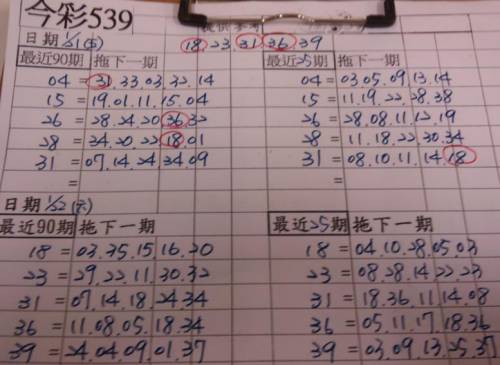 今彩539
日期 1/21(五) 18 23 31 36 39
最近90期 拖下一期 最近25期 拖下一期
04 = 31.33.03.32.14 04 = 03.05.09.13.14
15 = 19.01.11.15.04 15 = 11.19.22.28.38
26 = 28.24.20.36.32 26 = 28.08.11.12.19
28 = 34.20.22.18.01 28 = 11.18.22.30.34
31 = 07.14.24.34.09 31 = 08.10.11.14.18
= =
日期 1/22(六)
最近90期 拖下一期 最近25期 拖下一期
18 = 03.35.15.16.20 18 = 04.10.28.05.03
23 = 29.22.11.30.32 23 = 08.28.14.22.23
31 = 07.14.18.24.34 31 = 18.36.11.14.08
36 = 11.08.05.18.34 36 = 05.11.17.18.36
39 = 24.04.09.01.37 39 = 03.09.13.25.37